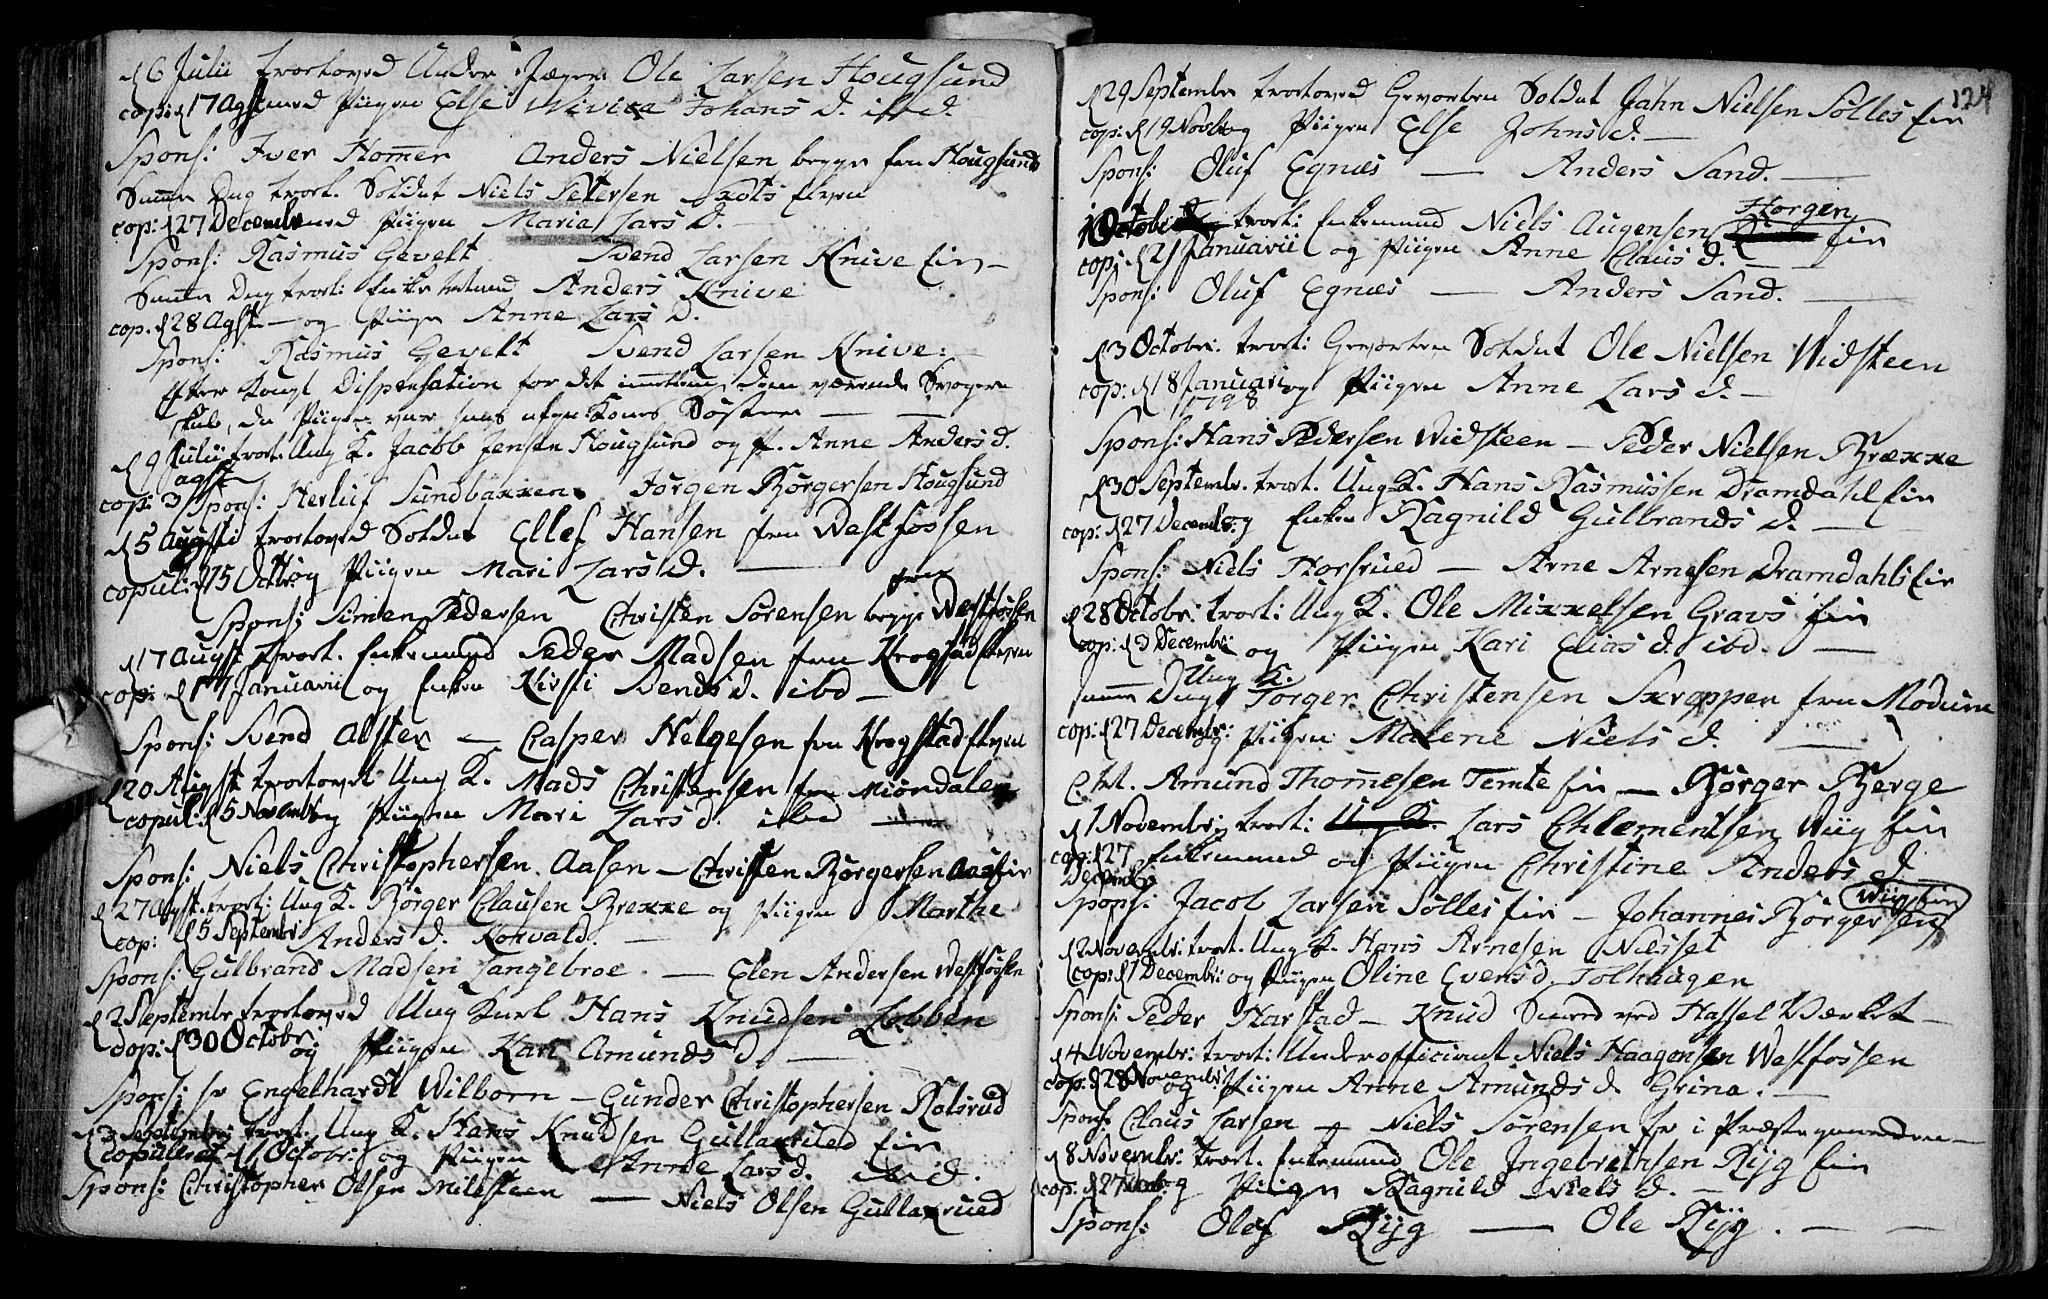 d 6 Julii trolovved Under Jæger Ole Larsen Hougsund
cop: d 17 Agst med Piigen Else Wivica Johans d. ibd.
Spons: Iver Homer Anders Nielsen begge fra Hougsund
Samme Dag trol. Soldat Niels Petersen
cop: d 27 Decembr med Piigen Maria Lars d.
Spons: Rasmus Gevelt Svend Larsen Knive Eier
Samme Dag trol: Enkemand Anders Knive
cop. d 28 Agst. og Piigen Anne Lars d.
Spons: Rasmus Gevelt Svend Larsen Knive:
Efter Kongl Dispensation for det imellem dem værende Svoger
skab, da Piigen var hans afgne Kones Søster
d 9 Julii trol. Ung K. Jacob Jensen Hougsund og P. Anne Anders d.
cop: 3 agst Spons: Herluf Sundbakken Jørgen Børgersen Hougsund
d 5 Augsti trolovved Soldat Ellef Hansen fra Westfossen
copul: d 15 Octbr og Piigen Mari Lars d.
Spons: Simen Pedersen Christen Sørensen begge fra Westfossen
d 17 Augst trol. Enkemand Peder Madsen fra Krogstad
cop: d 17 Januarii og Enken Kirsti Svends d. ibd
Spons: Svend Alster Casper Helgesen fra Krogstad
d 20 Augst trolovet Ung K. Mads Christensen fra Miøndalen
copul: d 5 Novembr og Piigen Mari Lars d. ibd
Spons: Niels Christophersen Aasen Christen Børgersen Aas Eier
d 27 Agst. trol: Ung K. Børger Clausen Brekke og Piigen Marthe
cop: d 5 Septembr Anders d. Korvald.
Spons: Gulbrand Madsen Langebroe Elen Andersen Westfossen
d 2 Septembr trolovved Ung Karl Hans Knudsen Lobben
cop: d 30 Octobr: og Piigen Kari Amunds d.
Spons: Sr Engelhardt Wilborn Gunder Christophersen Kolsrud
d 3 Septembr: trol. Ung K. Hans Knudsen Gullaxrued Eier
copuleret d 1 Octobr: og Piigen Anne Lars d. ibid.
Spons: Christopher Olsen Milesteen Niels Olsen Gullaxrued
124
d 29 Septembr trolovved Gevorben Soldat John Nielsen Solles Eier
cop: d 19 Novbr og Piigen Else Johns d.
Spons: Oluf Egnæs Anders Sand.
1 Octobr trol: Enkemand Niels Augensen Horgen Eier
cop: d 21 Januarii og Piigen Anne Claus d.
Spons: Oluf Egnæs Anders Sand.
d 3 Octobr: trol: Gevorben Soldat Ole Nielsen Widsteen
cop: d 18 Januari 1798 og Piigen Anne Lars d.
Spons: Hans Pedersen Widsteen Peder Nielsen Brække
d 30 Septembr. trol. Ung K. Hans Rasmussen Dramdahl Eier
cop: d 27 Decembr. og Enken Ragnild Gulbrands d.
Spons: Niels Horsrued Arne Arnesen Dramdahls Eier
d 28 Octobr: trol: Ung K. Ole Mikkelsen Gravs Eier
cop: d 3 Decembr: og Piigen Kari Elias d. ibd.
Samme Dag Ung K. Torger Christensen Skrepper fra Modum
cop: d 27 Decembr: og Piigen Malene Niels d.
Amund Thomesen Temte Eier Børger Berge
d 1 Novembr: trol: U. K. Lars Chlementsen Wiig Eier
cop: 127 Decembr Enkemand og Piigen Christine Anders d
Spons: Jacob Larsen Solles Eier Johannes Børgersen Wiig Eier
d 2 Novembr: trol. Ung K. Hans Arnesen Nesset
cop: d 7 Decembr: og Piigen Oline Evens d. Tolhaugen
Spons: Peder Harstad Knud Smed ved Hassel Værket
d 4 Novembr: trol: Underofficiant Niels Haagensen Westfossen
cop: d 28 Novembr: og Piigen Anne Amunds d Grina.
Spons. Claus Larsen Niels Sørensen i Præstegaarden
d 8 Novembr: trol. Enkemand Ole Ingebrethsen Ryg Eier
cop. d 27 og Piigen Ragnild Niels d.
Spons: Olef Ryg Ole Ryg.